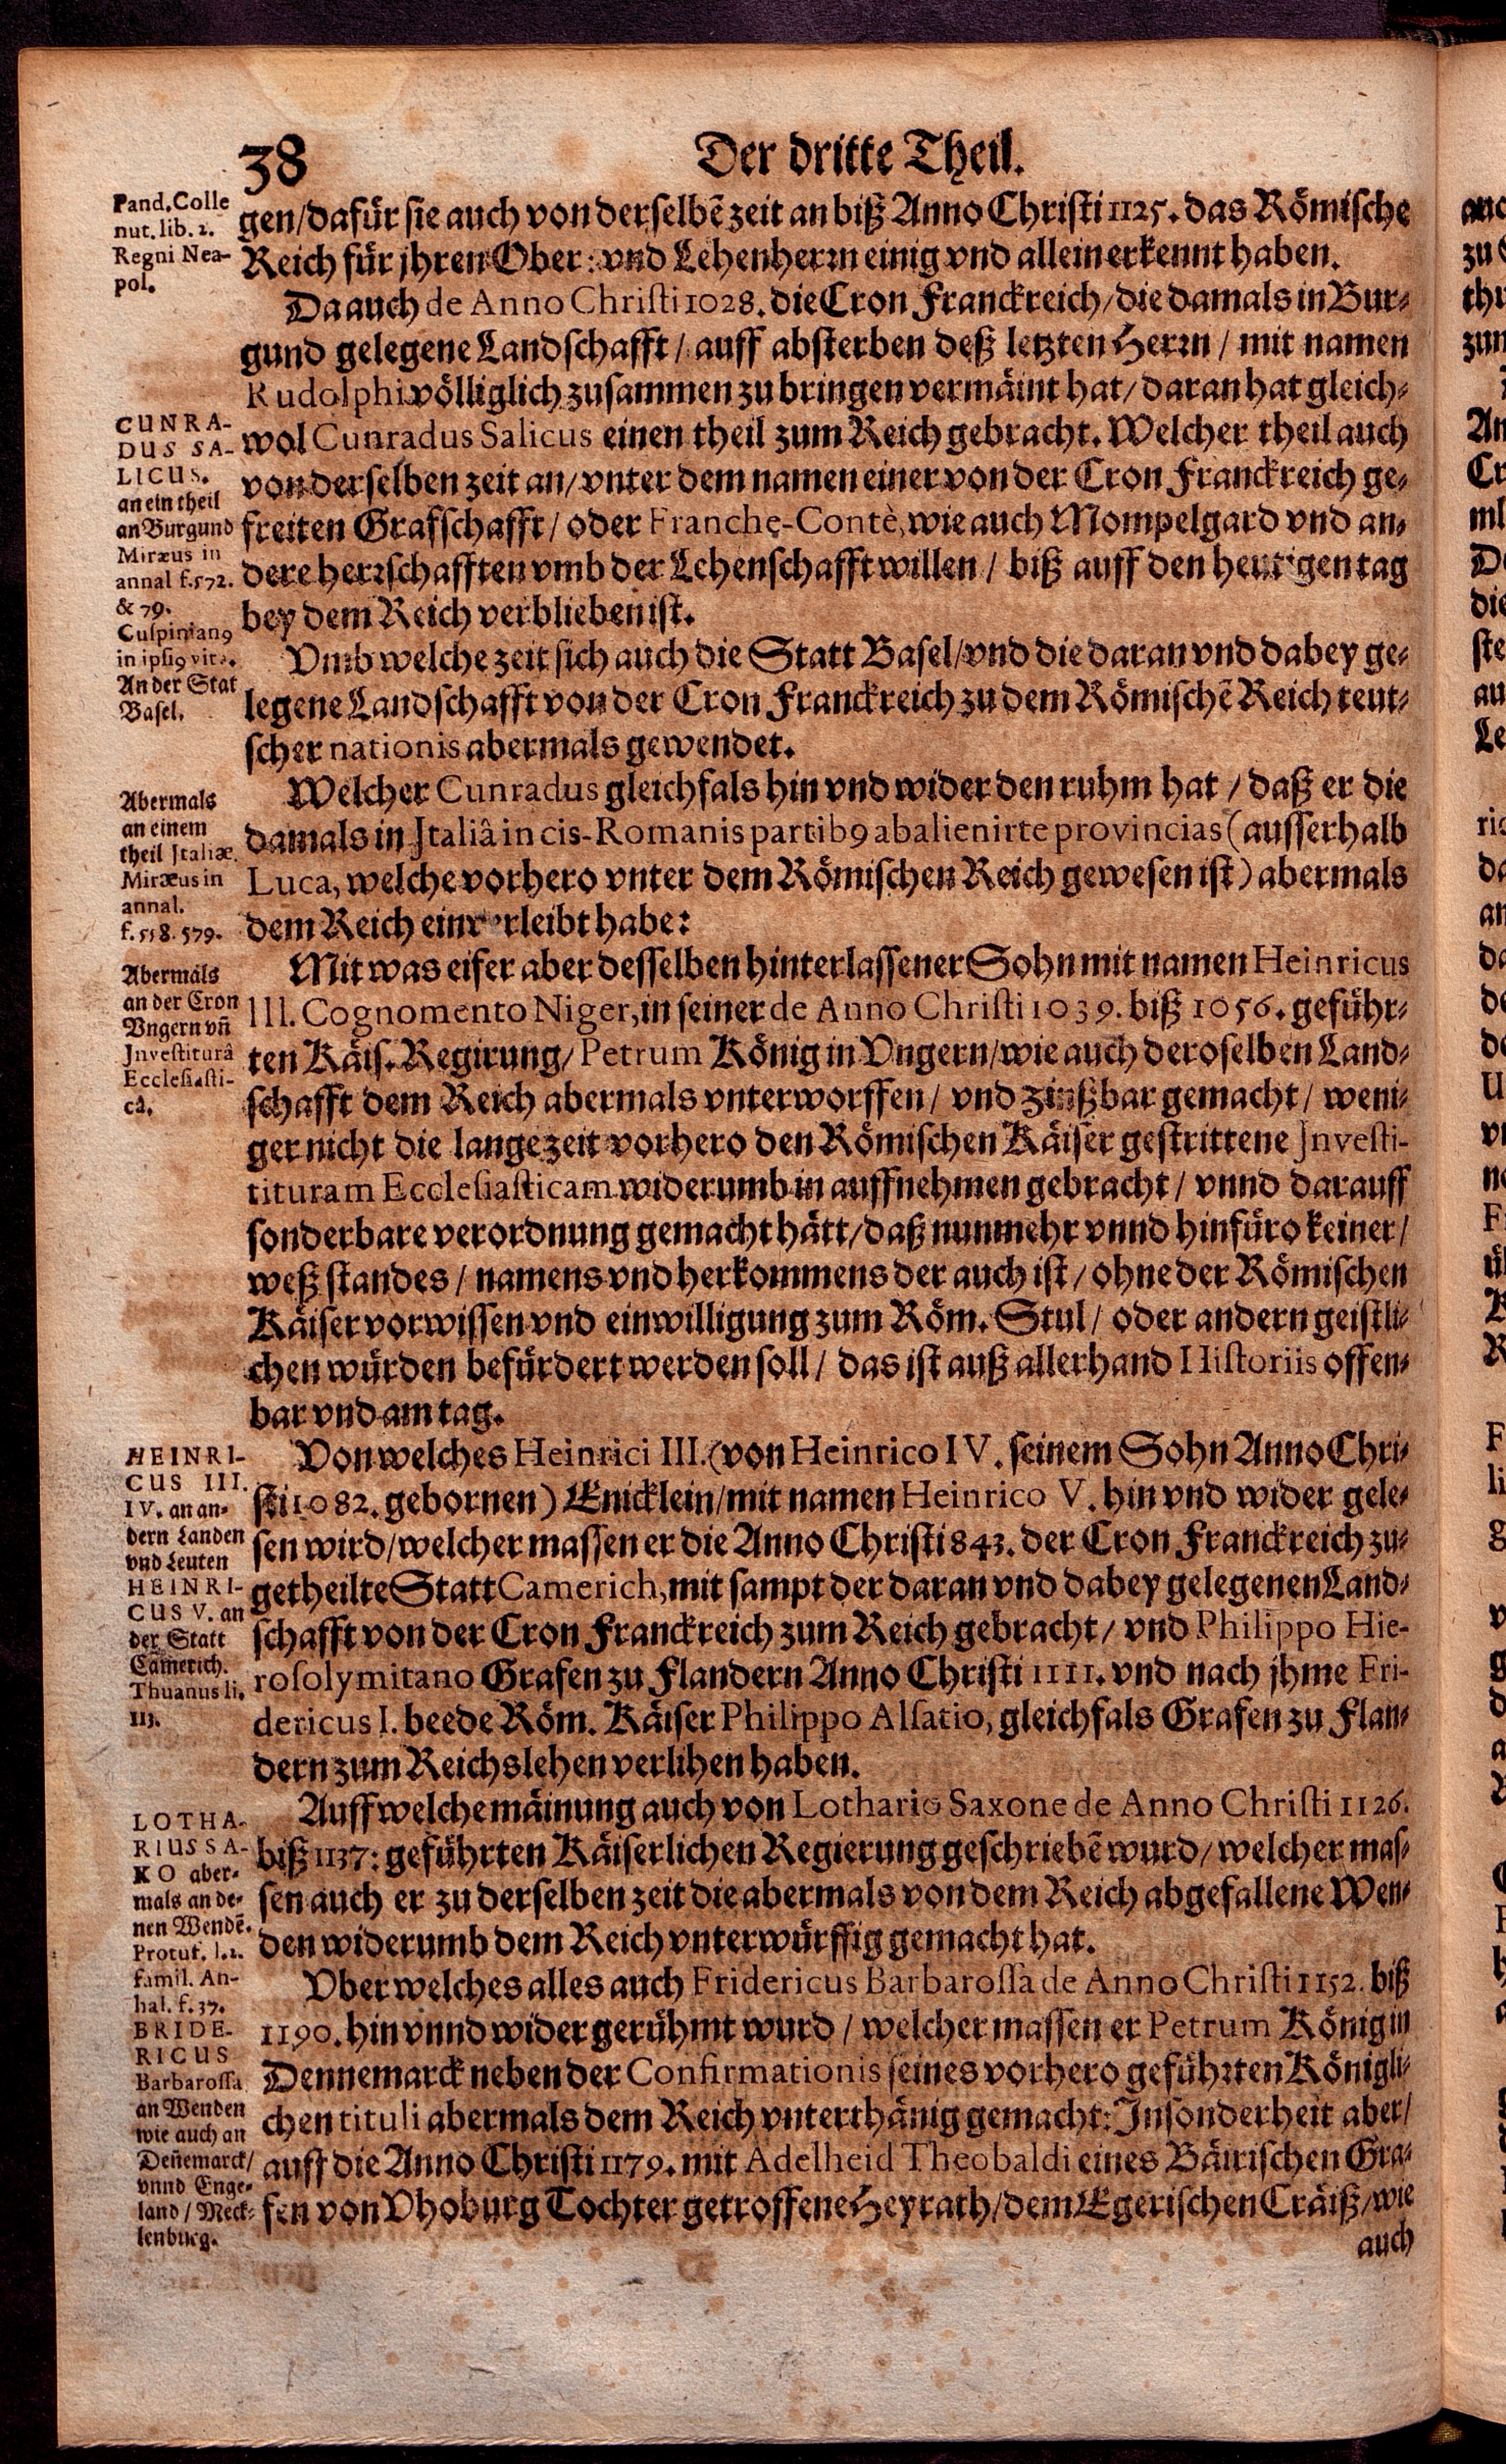 38
Der dritte Theil.
Pand. Colle
nut. lib. 2.
Regni Nea-
pol.
gen/dafür sie auch von derselbẽ zeit an biß Anno Christi 1125. das Römische
Reich für jhren Ober: vnd Lehenherrn einig vnd allein erkennt haben.
Da auch de Anno Christi 1028. die Cron Franckreich/die damals in Bur-
gund gelegene Landschafft/ auff absterben deß letzten Herrn / mit namen
Rudolphi völliglich zusammen zu bringen vermäint hat/daran hat gleich-
wol Cunradus Salicus einen theil zum Reich gebracht. Welcher theil auch
von derselben zeit an/vnter dem namen einer von der Cron Franckreich ge-
freiten Grafschafft/ oder Franche-Contè, wie auch Mompelgard vnd an-
dere herrschafften vmb der Lehenschafft willen / biß auff den heutigen tag
bey dem Reich verblieben ist.
CUNRA-
DUS SA-
LICUS.
an ein theil
an Burgund
Miræus in
annal f. 572.
& 79.
Cuspinianꝰ
in ipsiꝰ vita.
An der Stat
Basel.
Vmb welche zeit sich auch die Statt Basel/vnd die daran vnd dabey ge-
legene Landschafft von der Cron Franckreich zu dem Römischẽ Reich teut-
scher nationis abermals gewendet.
Welcher Cunradus gleichfals hin vnd wider den ruhm hat / daß er die
damals in Italiâ in cis-Romanis partibꝰ abalienirte provincias (ausserhalb
Luca, welche vorhero vnter dem Römischen Reich gewesen ist) abermals
dem Reich einverleibt habe:
Abermals
an einem
theil Italiæ.
Miræus in
annal.
f. 558. 579.
Mit was eifer aber desselben hinterlassener Sohn mit namen Heinricus
III. Cognomento Niger, in seiner de Anno Christi 1039. biß 1056. geführ-
ten Käis. Regirung/ Petrum König in Vngern/wie auch deroselben Land-
schafft dem Reich abermals vnterworffen/ vnd zinßbar gemacht/ weni-
ger nicht die lange zeit vorhero den Römischen Käiser gestrittene Investi-
tituram Ecclesiasticam widerumb in auffnehmen gebracht/ vnnd darauff
sonderbare verordnung gemacht hätt/daß nunmehr vnnd hinfüro keiner/
weß standes / namens vnd herkommens der auch ist / ohne der Römischen
Käiser vorwissen vnd einwilligung zum Röm. Stul/ oder andern geistli-
chen würden befürdert werden soll/ das ist auß allerhand Historiis offen-
bar vnd am tag.
Abermals
an der Cron
Vngern vñ
Investiturâ
Ecclesiasti-
câ.
Von welches Heinrici III. (von Heinrico IV. seinem Sohn Anno Chri-
sti 1082. gebornen) Enicklein/mit namen Heinrico V. hin vnd wider gele-
sen wird/welcher massen er die Anno Christi 843. der Cron Franckreich zu-
getheilte Statt Camerich, mit sampt der daran vnd dabey gelegenen Land-
schafft von der Cron Franckreich zum Reich gebracht/ vnd Philippo Hie-
rosolymitano Grafen zu Flandern Anno Christi 1111. vnd nach jhme Fri-
dericus I. beede Röm. Käiser Philippo Alsatio, gleichfals Grafen zu Flan-
dern zum Reichslehen verlihen haben.
HEINRI-
CUS III.
IV. an an-
dern Landen
vnd Leuten
HEINRI-
CUS V. an
der Statt
Camerich.
Thuanus li.
113.
Auff welche mäinung auch von Lothario Saxone de Anno Christi 1126.
biß 1137: geführten Käiserlichen Regierung geschriebẽ wurd/welcher mas-
sen auch er zu derselben zeit die abermals von dem Reich abgefallene Wen-
den widerumb dem Reich vnterwürffig gemacht hat.
LOTHA-
RIUS SA-
XO aber-
mals an de-
nen Wendẽ.
Protuf. l. 2.
famil. An-
hal. f. 37.
Vber welches alles auch Fridericus Barbarossa de Anno Christi 1152. biß
1190. hin vnnd wider gerühmt wurd / welcher massen er Petrum König in
Dennemarck neben der Confirmationis seines vorhero geführten Königli-
chen tituli abermals dem Reich vnterthänig gemacht: Insonderheit aber/
auff die Anno Christi 1179. mit Adelheid Theobaldi eines Bäirischen Gra-
fen von Vhoburg Tochter getroffene Heyrath/dem Egerischen Cräiß/wie
BRIDE-
RICUS
Barbarossa
an Wenden
wie auch an
Deñemarck/
vnnd Enge-
land / Meck-
lenburg.
auch